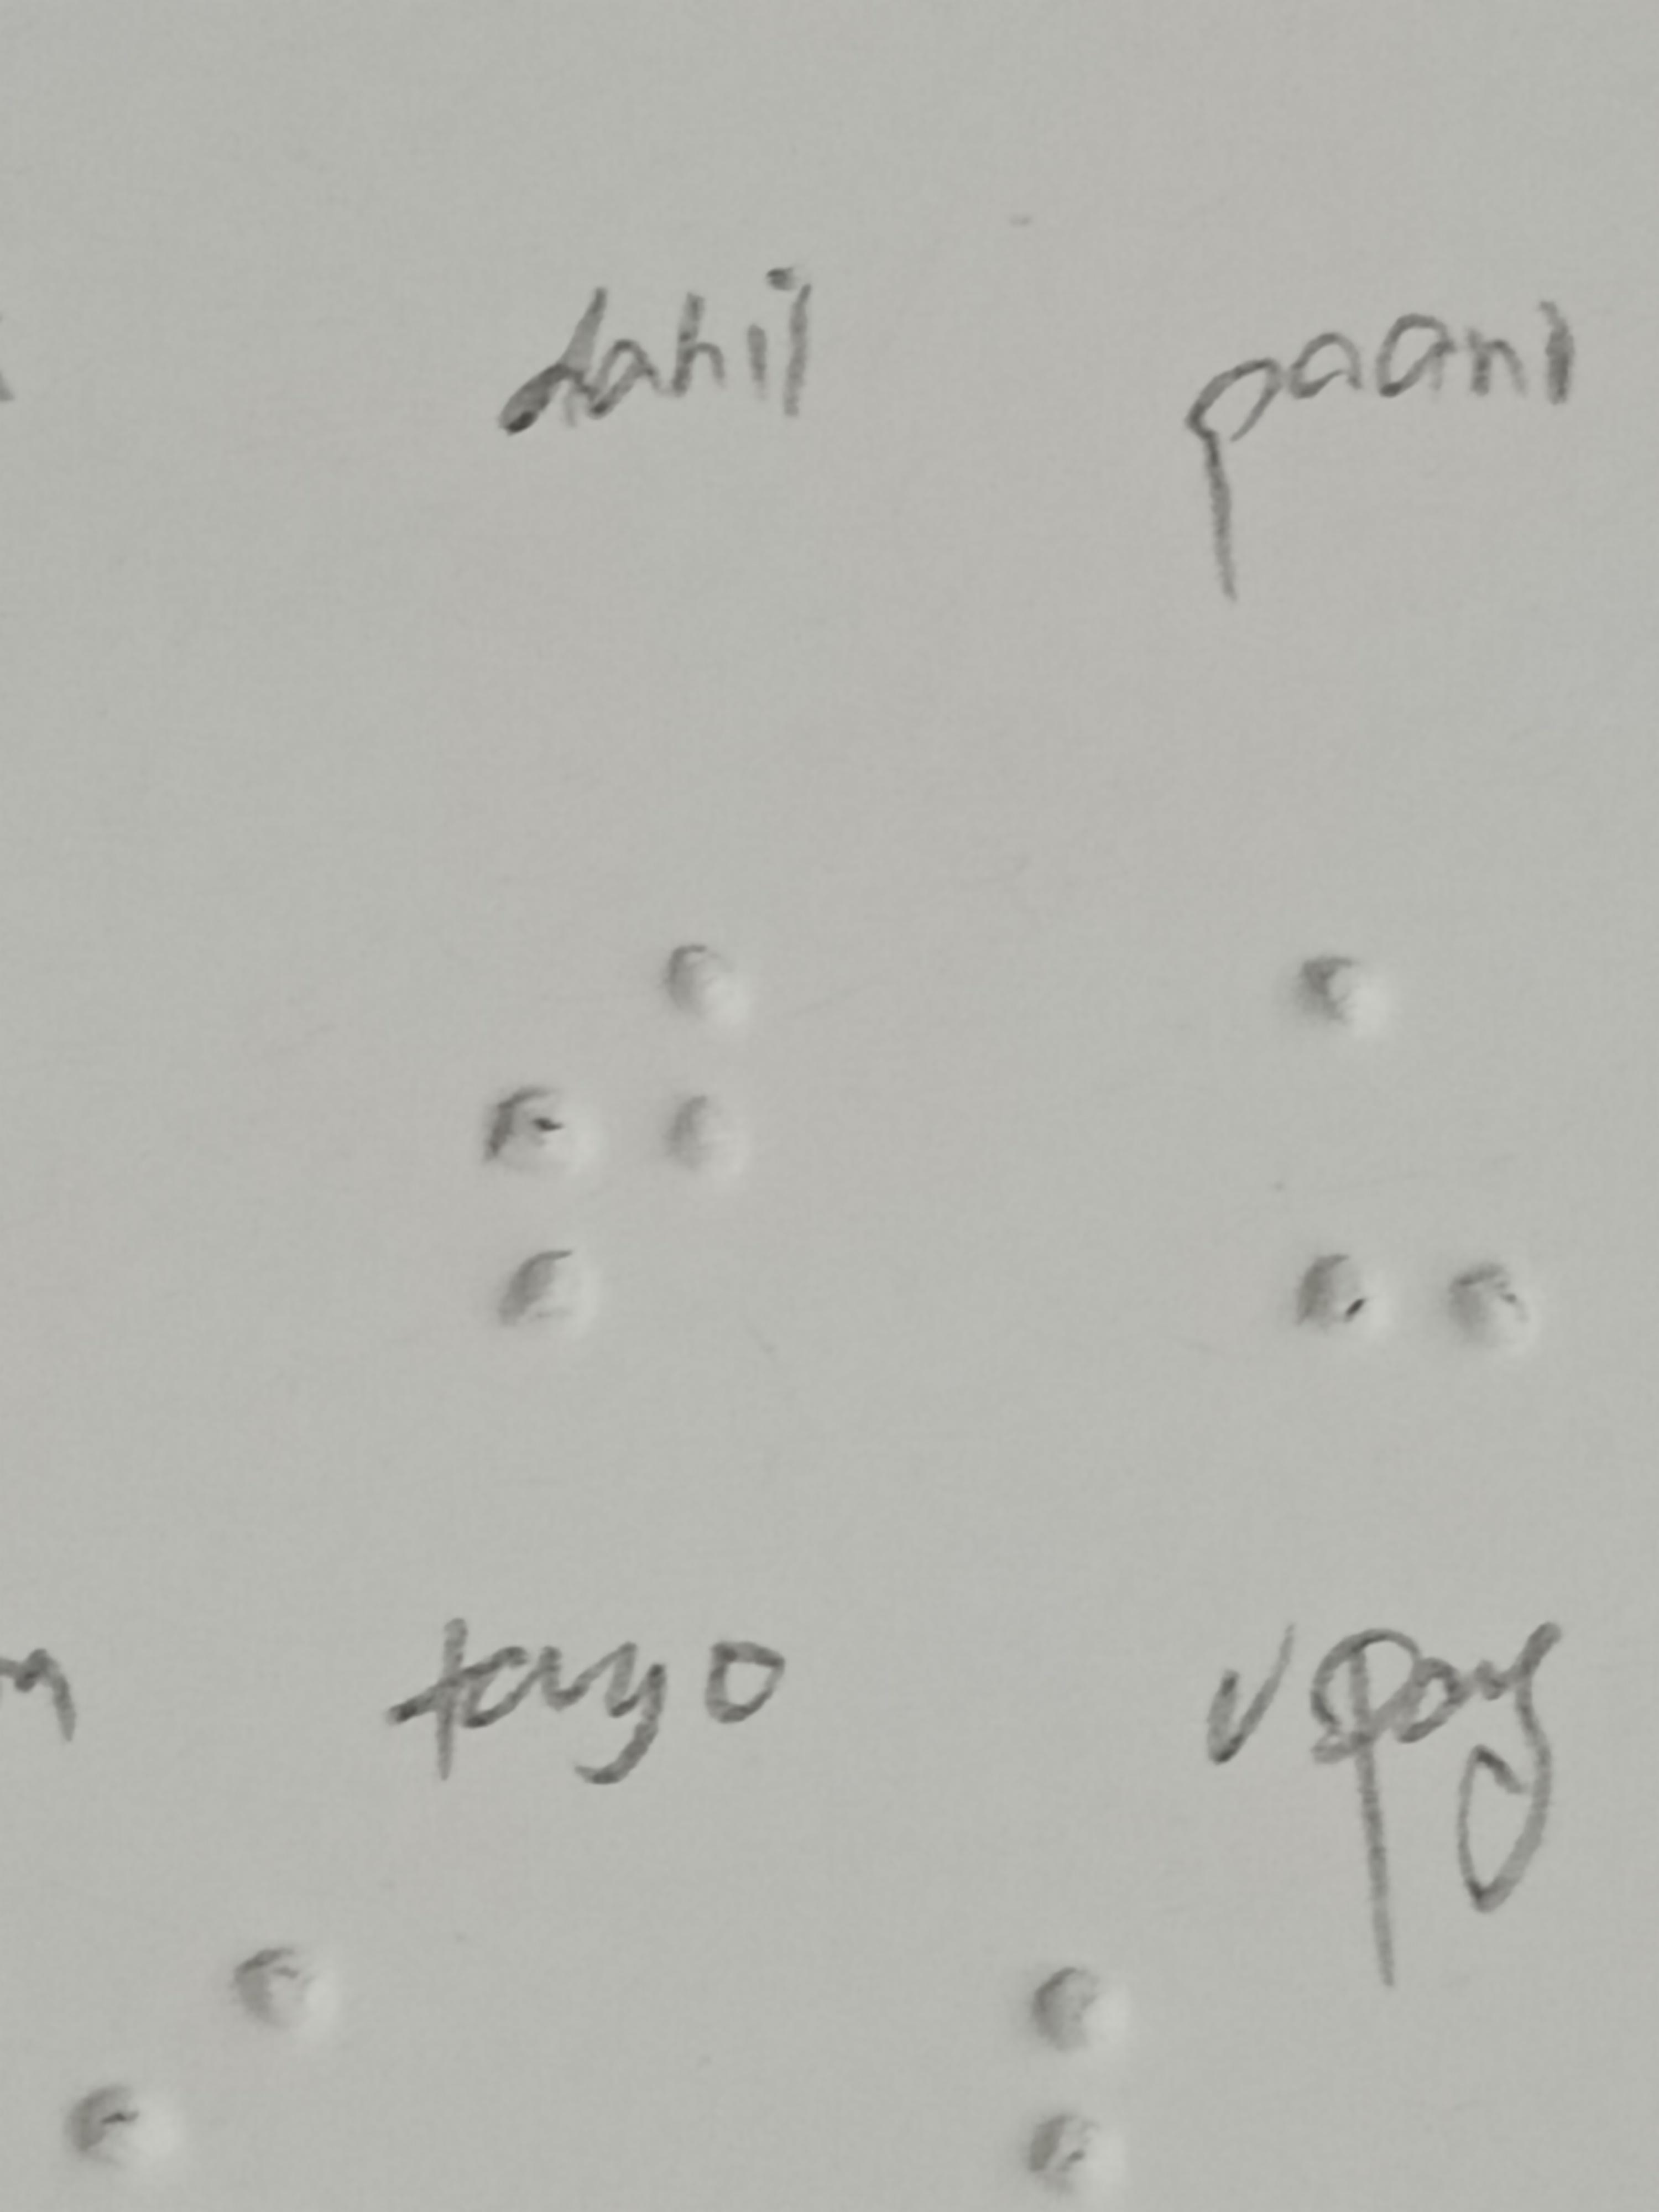 dahil paano
tayo upang